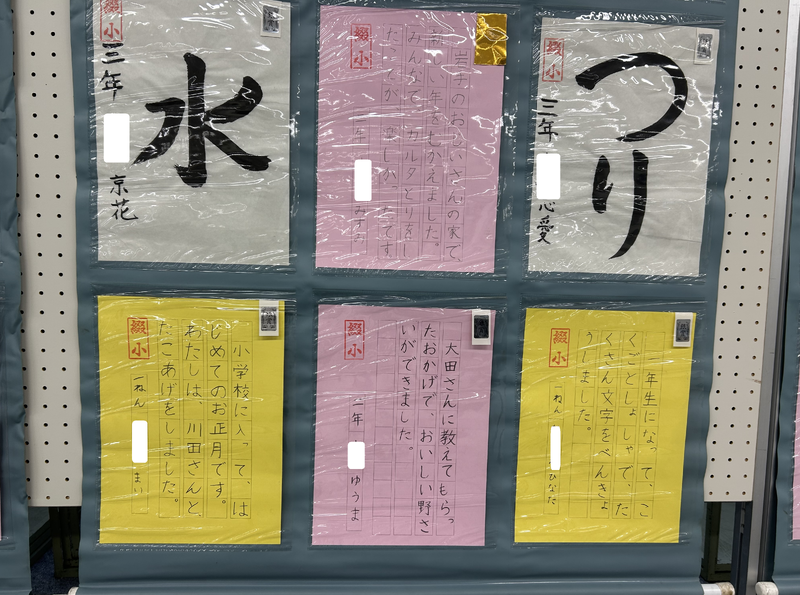 綴小
三年
京花
水
岩手のおじいさんの家で、
新しい年をむかえました。
みんなで、カルタとりをし
たことが、楽しかったです。
綴小
二年
みすず
つり
綴小
三年
心愛
小学校に入って、は
じめてのお正月です。
わたしは、川田さんと
たこあげをしました。
綴小
一ねん
まい
大田さんに教えてもらっ
たおかげで、おいしい野さ
いができました。
綴小
二年
ゆうま
一年生になって、こ
くごとしょしゃで、た
くさん文字をべんきょ
うしました。
綴小
一ねん
ひなた